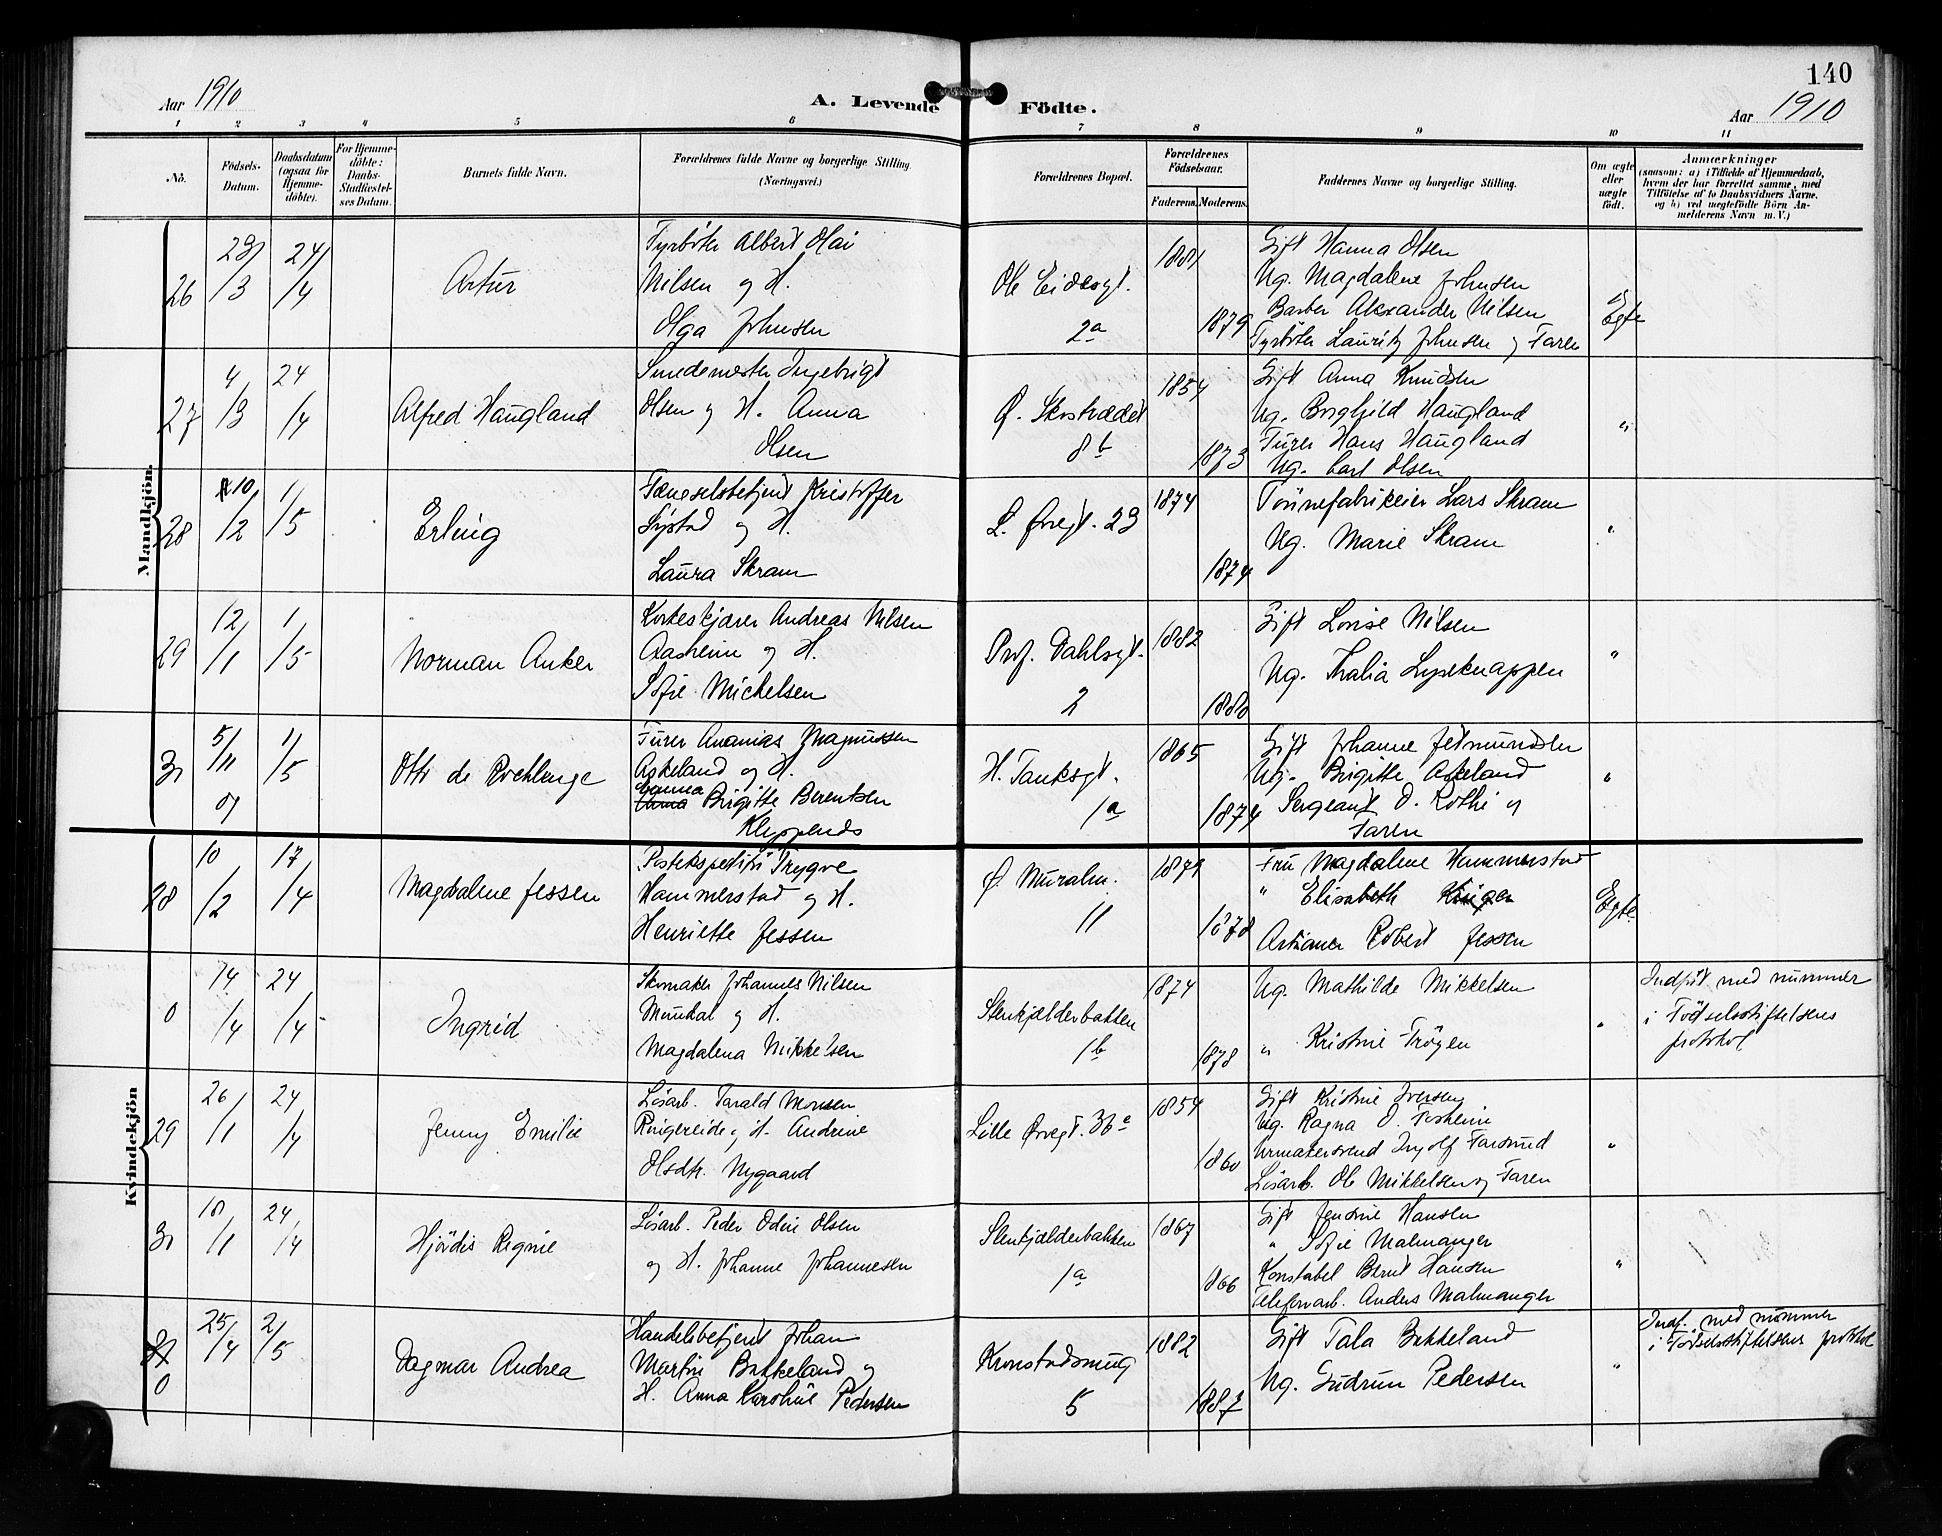 140
Aar 1910
A. Levende Födte.
Aar 1910
1 2 3 4 5 6 7 8 9 10 11
No.
Födsels-Datum.
Daabsdatum (ogsaa for Hjemme-döbte).
For Hjemme-döbte: Daabs-Stadfæstel-ses Datum.
Barnets fulde Navn.
Forældrenes fulde Navne og borgerlige Stilling.
(Næringsvei.)
Forældrenes Bopæl.
Forældrenes Födselsaar.
Faderens. Moderens.
Faddernes Navne og borgerlige Stilling.
Om ægte eller uægte födt.
Anmærkninger
(saasom: a) i Tilfælde af Hjemmedaab,
hvem der har forrettet samme, med
Tilföielse af to Daabsvidners Navne.
og b) ved uegtefödte Börn An-
melderens Navn m. V.)
Mandkjön.
26
23/3
24/4
Artur
Fyrböter Albert Olai
Nilsen og H.
Olga Johnsen
Ole Eidesgt.
2a
1881
1879
Gift Hanna Olsen
Ug. Magdalene Johnsen
Barber Alexander Nilsen
Fyrböter Lauritz Johnsen og Faren
Egte
27
4/3
24/4
Alfred Haugland
Smedemester Ingebrigt
Olsen og H. Anna
Olsen
Ø. Skostrædet
8b
1854
1873
Gift Anna Knudsen
Ug. Borghild Haugland
Furer Hans Haugland
Ug. Carl Olsen
"
28
10/2
1/5
Erling
Fængselsbetjent Kristoffer
Systad og H.
Laura Skram
L. Øvregt. 23
1874
1874
Tönnefabrikeier Lars Skram
Ug. Marie Skram
"
29
12/1
1/5
Norman Anker
Korkeskjærer Andreas Nilsen
Aasheim og H.
Sofie Michelsen
Prof. Dahlsgt.
2
1882
1880
Gift Lovise Nilsen
Ug. Thalia Lyseknappen
"
30
5/11 09
1/5
Otto de
Furer Ananias Magnussen
Askeland og H.
Brigitte Berentsen
H. Tanksgt.
1a
1865
1874
Gift Johanne
Ug. Brigitte Askeland
Sergeant O. Rothe og
Faren
"
Kvindekjön
28
10/2
17/4
Magdalene Jessen
Postekspeditör Trygve
Hammerstad og H.
Henriette Jessen
Ø. Muralm.
11
1879
1878
Fru Magdalene Hammerstad
" Elisabeth
Robert Jessen
Egte
0
14/4
24/4
Ingrid
Skomaker Johannes Nilsen
Mundal og H.
Magdalena Mikkelsen
Stenkjælderbakken
1b
1874
1878
Ug. Mathilde Mikkelsen
" Kristine Tröyen
"
Indfört med nummer
i Födselsstiftelsens
protokol
29
26/1
24/4
Jenny Emilie
Lösarb. Tarald Monsen
Ringereide og H. Andrine
Olsdtr. Nygaard
Lille Øvregt. 36a
1854
1860
Gift Kristine Iversen
Ug. Ragna O. Toskeim
Urmakersvend Ingolf Farsund
Lösarb. Ole Mikkelsen og Faren
"
30
18/1
24/4
Hjördis Regine
Lösarb. Peder Odin Olsen
og H. Johanne Johannesen
Stenkjælderbakken
1a
1867
1866
Gift Jensine Hansen
" Sofie Malmanger
Konstabel Bernt Hansen
Telefonarb. Anders Malmanger
"
31
0
25/4
2/5
Dagmar Andrea
Handelsbetjent Johan
Martin Birkeland og
H. Anna Karoline Pedersen
Kronstadsmug
5
1882
1887
Gift Tala Birkeland
Ug. Gudrun Pedersen
"
Indf. med nummer
i Födselsstiftelsens protokol